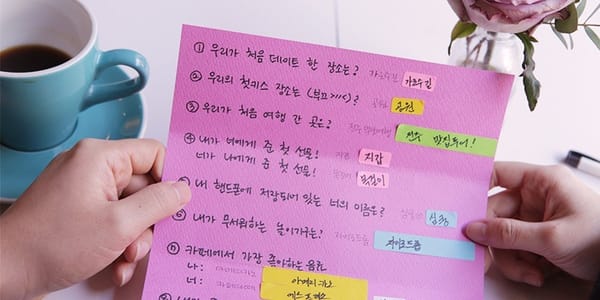 ① 우리가 처음 데이트 한 장소는? 가로수길 가로수길
② 우리의 첫키스 장소는 (부끄>///<) 공원 공원
③ 우리가 처음 여행 간 곳은? 전주 맛집투어!
④ 내가 너에게 준 첫 선물! 지갑 지갑
너가 나에게 준 첫 선물! 목걸이 목걸이
⑤ 내 핸드폰에 저장되어 있는 너의 이름은? 심쿵
⑥ 내가 무서워하는 놀이기구는? 자이로드롭 자이로드롭
⑦ 카페에서 가장 좋아하는 음료
나 :
너 :